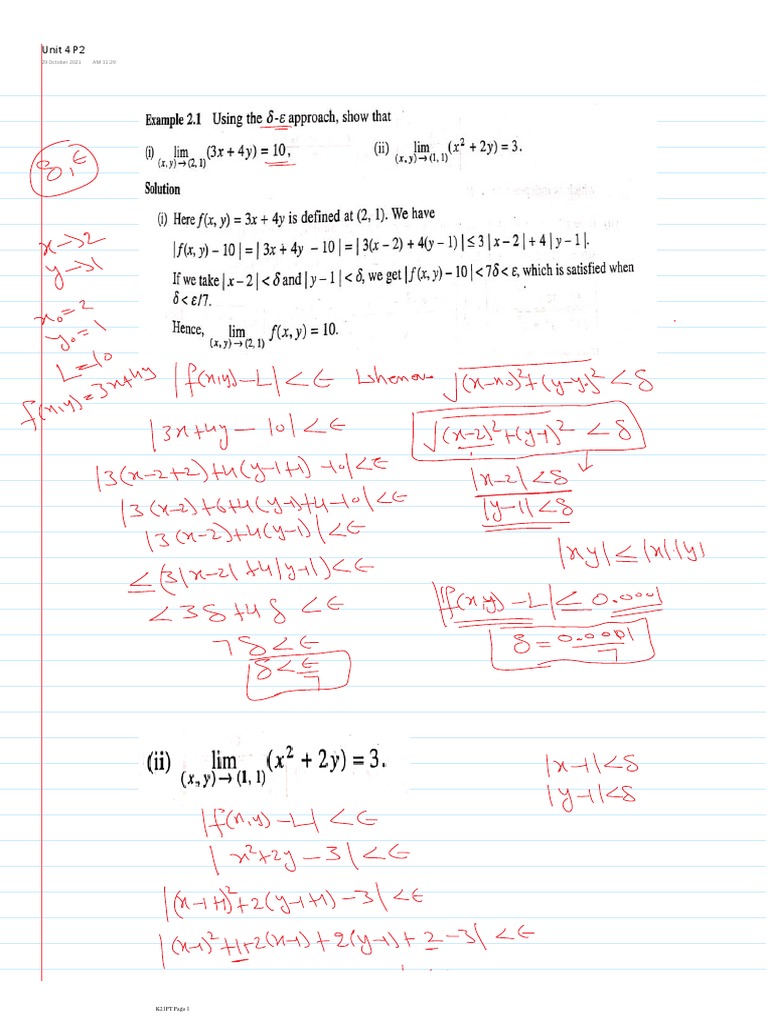 Unit 4 P2
29 October 2021 AM 11:29
Example 2.1 Using the δ-ε approach, show that
(i) lim (x, y)→(2, 1) (3x + 4y) = 10, (ii) lim (x, y)→(1, 1) (x² + 2y) = 3.
Solution
(i) Here f(x, y) = 3x + 4y is defined at (2, 1). We have
| f(x, y) – 10 | = | 3x + 4y – 10 | = | 3(x – 2) + 4(y – 1) | ≤ 3 | x – 2 | + 4 | y – 1 |.
If we take | x – 2 | < δ and | y – 1 | < δ, we get | f(x, y) – 10 | < 7δ < ε, which is satisfied when
δ < ε/7.
Hence, lim (x, y)→(2, 1) f(x, y) = 10.
δ, ε
x→2
y→1
x₀=2
y₀=1
L=10
f(x,y)=3x+4y
|f(x,y)–L|<ε whenever √(x–x₀)²+(y–y₀)² <δ
|3x+4y–10|<ε
√(x–2)²+(y–1)² <δ
|3(x–2+2)+4(y–1+1)–10|<ε
|x–2|<δ
|3(x–2)+6+4(y–1)+4–10|<ε
|y–1|<δ
|3(x–2)+4(y–1)|<ε
|xy|≤|x|·|y|
≤(3|x–2|+4|y–1|)<ε
<3δ+4δ <ε
|f(x,y)–L|≤0.0001
7δ<ε
δ=0.0001/7
δ<ε/7
(ii) lim (x, y)→(1, 1) (x² + 2y) = 3.
|x–1|<δ
|y–1|<δ
|f(x,y)–L|<ε
|x²+2y–3|<ε
|(x–1+1)²+2(y–1+1)–3|<ε
|(x–1)²+1+2(x–1)+2(y–1)+2–3|<ε
K21PT Page 1